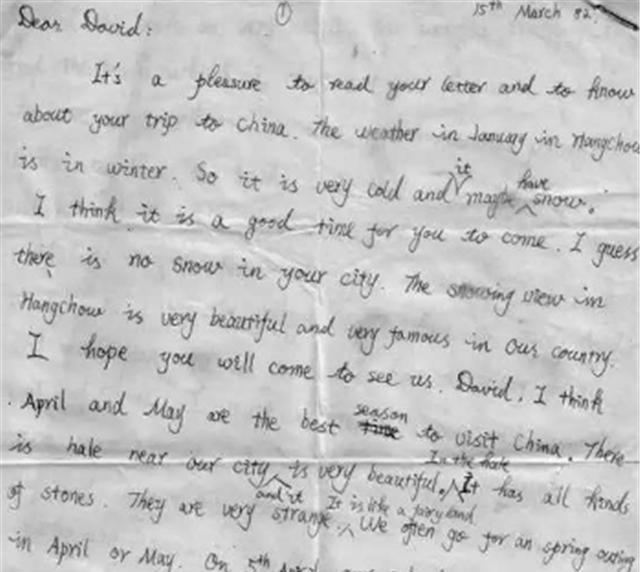 ① 15th March 82.
Dear David:
It's a pleasure to read your letter and to know
about your trip to China. The weather in January in Hangchou
is in winter. So it is very cold and it maybe have snow.
I think it is a good time for you to come. I guess
there is no snow in your city. The snowing view in
Hangchow is very beautiful and very famous in our country.
I hope you will come to see us. David, I think
April and May are the best season to visit China. There
is hale near our city and it is very beautiful. In the hale It has all kinds
of stones. They are very strange. It is like a fairy land We often go for an spring outing
in April or May. On 5th April